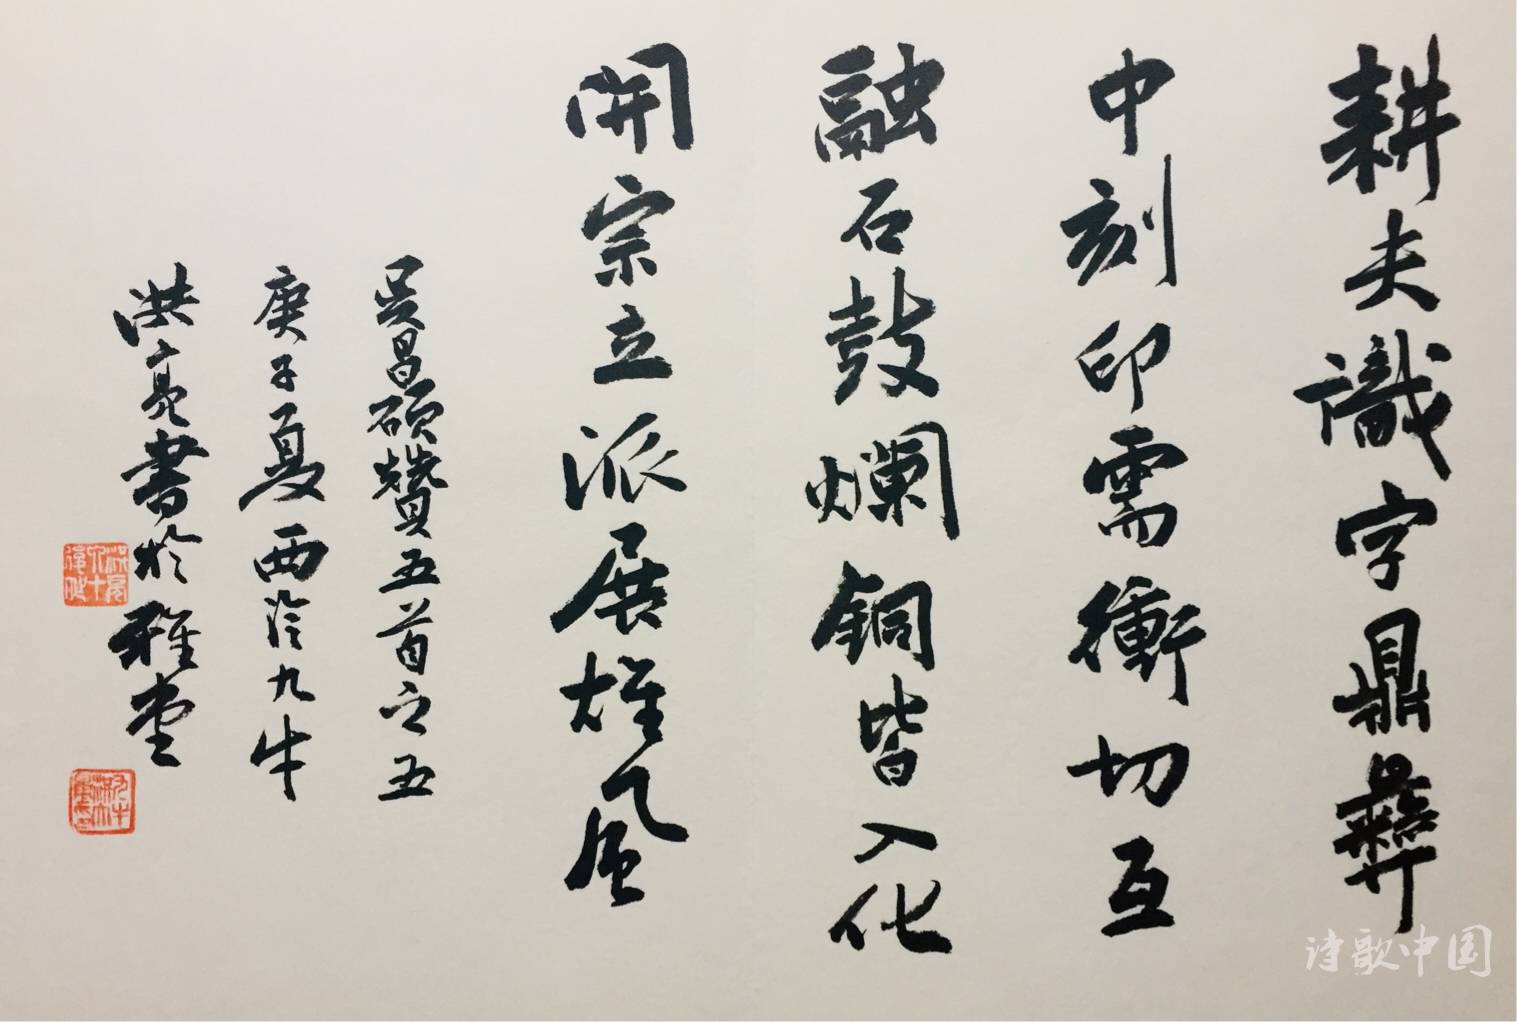 耕夫識字鼎彝
中刻印需衝切互
融石鼓爛銅皆入化
開宗立派展雄風
吴昌碩贊五首之五
庚子夏西泠九牛
洪亮書於雅堂
诗歌中国